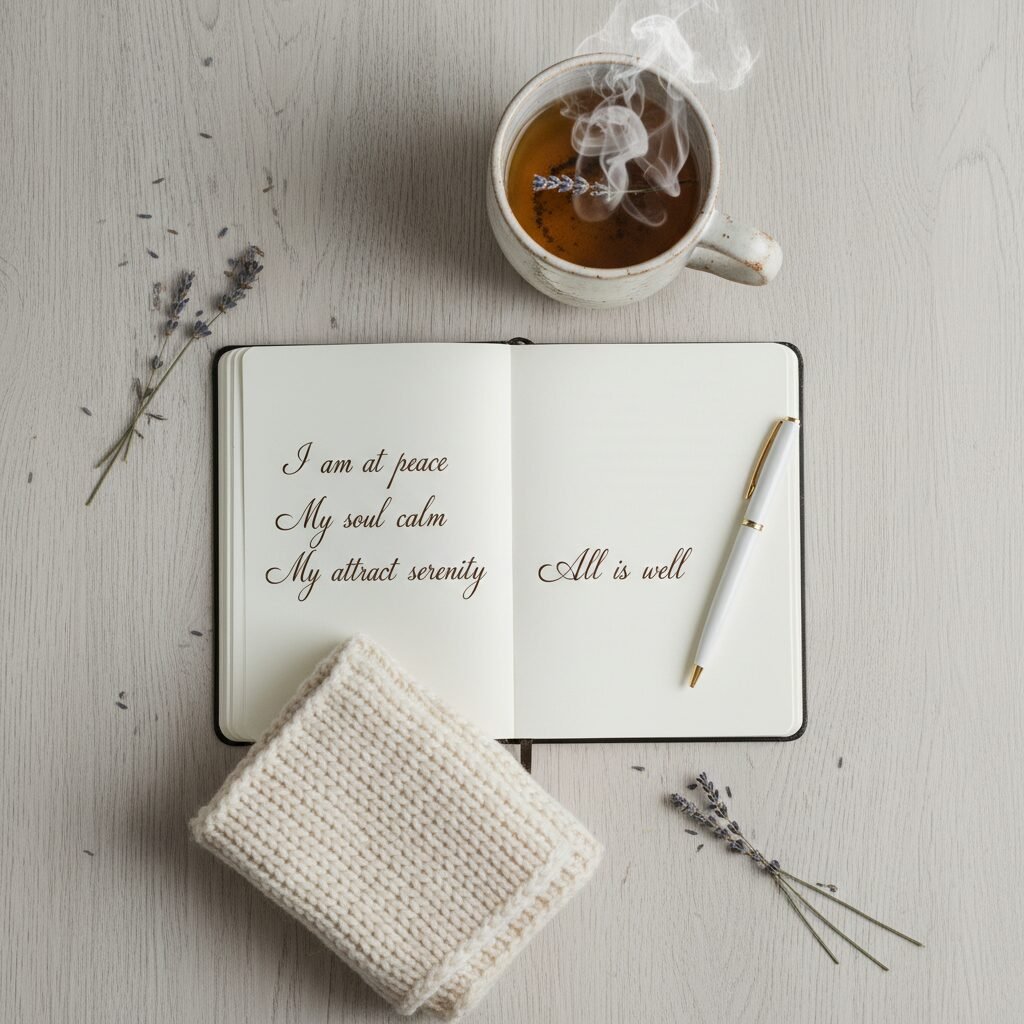 I am at peace
My soul calm
My attract serenity
All is well